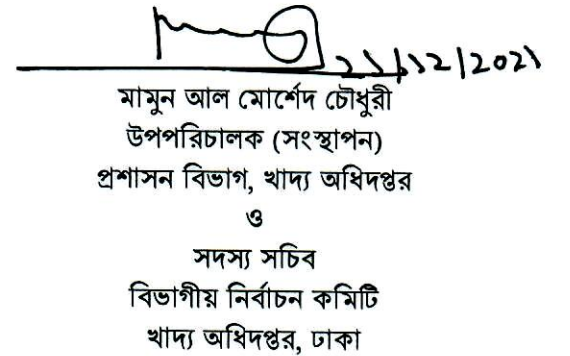 ২১/১২/2021
মামুন আল মোর্শেদ চৌধুরী
উপপরিচালক (সংস্থাপন)
প্রশাসন বিভাগ, খাদ্য অধিদপ্তর
ও
সদস্য সচিব
বিভাগীয় নির্বাচন কমিটি
খাদ্য অধিদপ্তর, ঢাকা